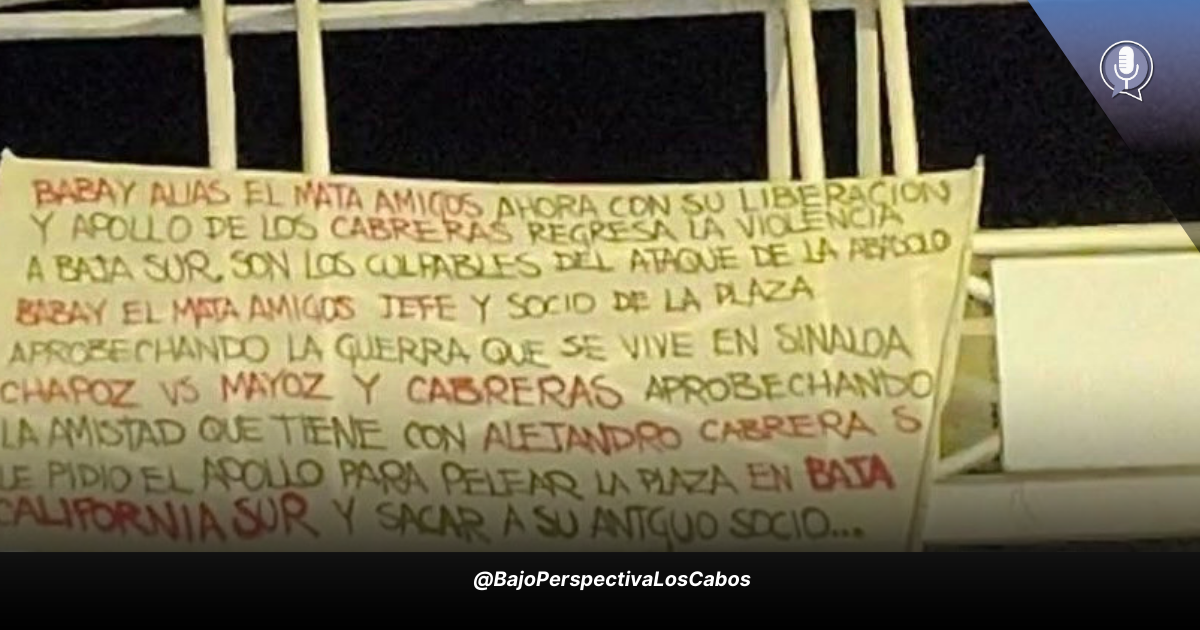 BABAY ALIAS EL MATA AMIGOS AHORA CON SU LIBERACION
Y APOLLO DE LOS CABRERAS REGRESA LA VIOLENCIA
A BAJA SUR, SON LOS CULPABLES DEL ATAQUE DE LA ABASOLO
BABAY EL MATA AMIGOS JEFE Y SOCIO DE LA PLAZA
APROBECHANDO LA GUERRA QUE SE VIVE EN SINALOA
CHAPOZ VS MAYOZ Y CABRERAS APROBECHANDO
LA AMISTAD QUE TIENE CON ALEJANDRO CABRERA S
LE PIDIO EL APOLLO PARA PELEAR LA PLAZA EN BAJA
CALIFORNIA SUR Y SACAR A SU ANTGUO SOCIO...
@BajoPerspectivaLosCabos